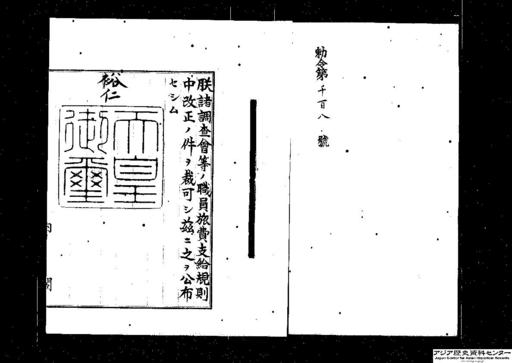 勅令第千百八號
朕諸調査會等ノ職員旅費支給規則
中改正ノ件ヲ裁可シ茲ニ之ヲ公布
セシム
裕仁
天皇
御璽
内閣
アジア歴史資料センター
Japan Center for Asian Historical Records